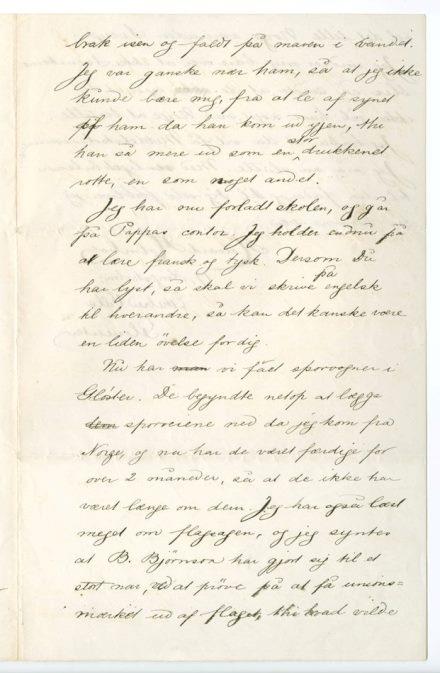 brak isen og faldt på maven i vandet.
Jeg var ganske nær ham, så at jeg ikke
kunde bære mig, fra at le af synet
af ham da han kom ud igjen, thi
han så mere ud som en stor drukkenet
rotte, en som noget andet.
Jeg har nu forladt skolen, og går
på Pappas contor. Jeg holder endnu på
at lære fransk og tysk. Dersom Du
har lyst, så skal vi skrive på engelsk
til hverandre, så kan det kanske være
en liden øvelse for dig.
Nu har man vi fået sporvogner i
Glöster. De begyndte netop at lægge
dem sporveiene ned da jeg kom fra
Norge, og nu har de været færdige for
over 2 måneder, så at de ikke har
været længe om dem. Jeg har også læst
meget om flagsagen, og jeg syntes
at B. Björnson har gjort sig til et
stort nar, ved at pröve på at få unions-
mærket ud af flaget, thi hvad vilde